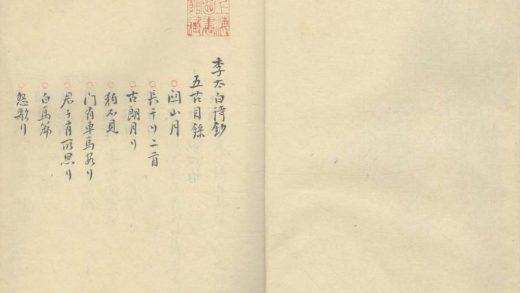 上海圖書館藏
李太白詩鈔
五古目錄
○關山月
○長干行二首
○古朗月行
○獨不見
○門有車馬客行
○君子有所思行
○白馬篇
怨歌行